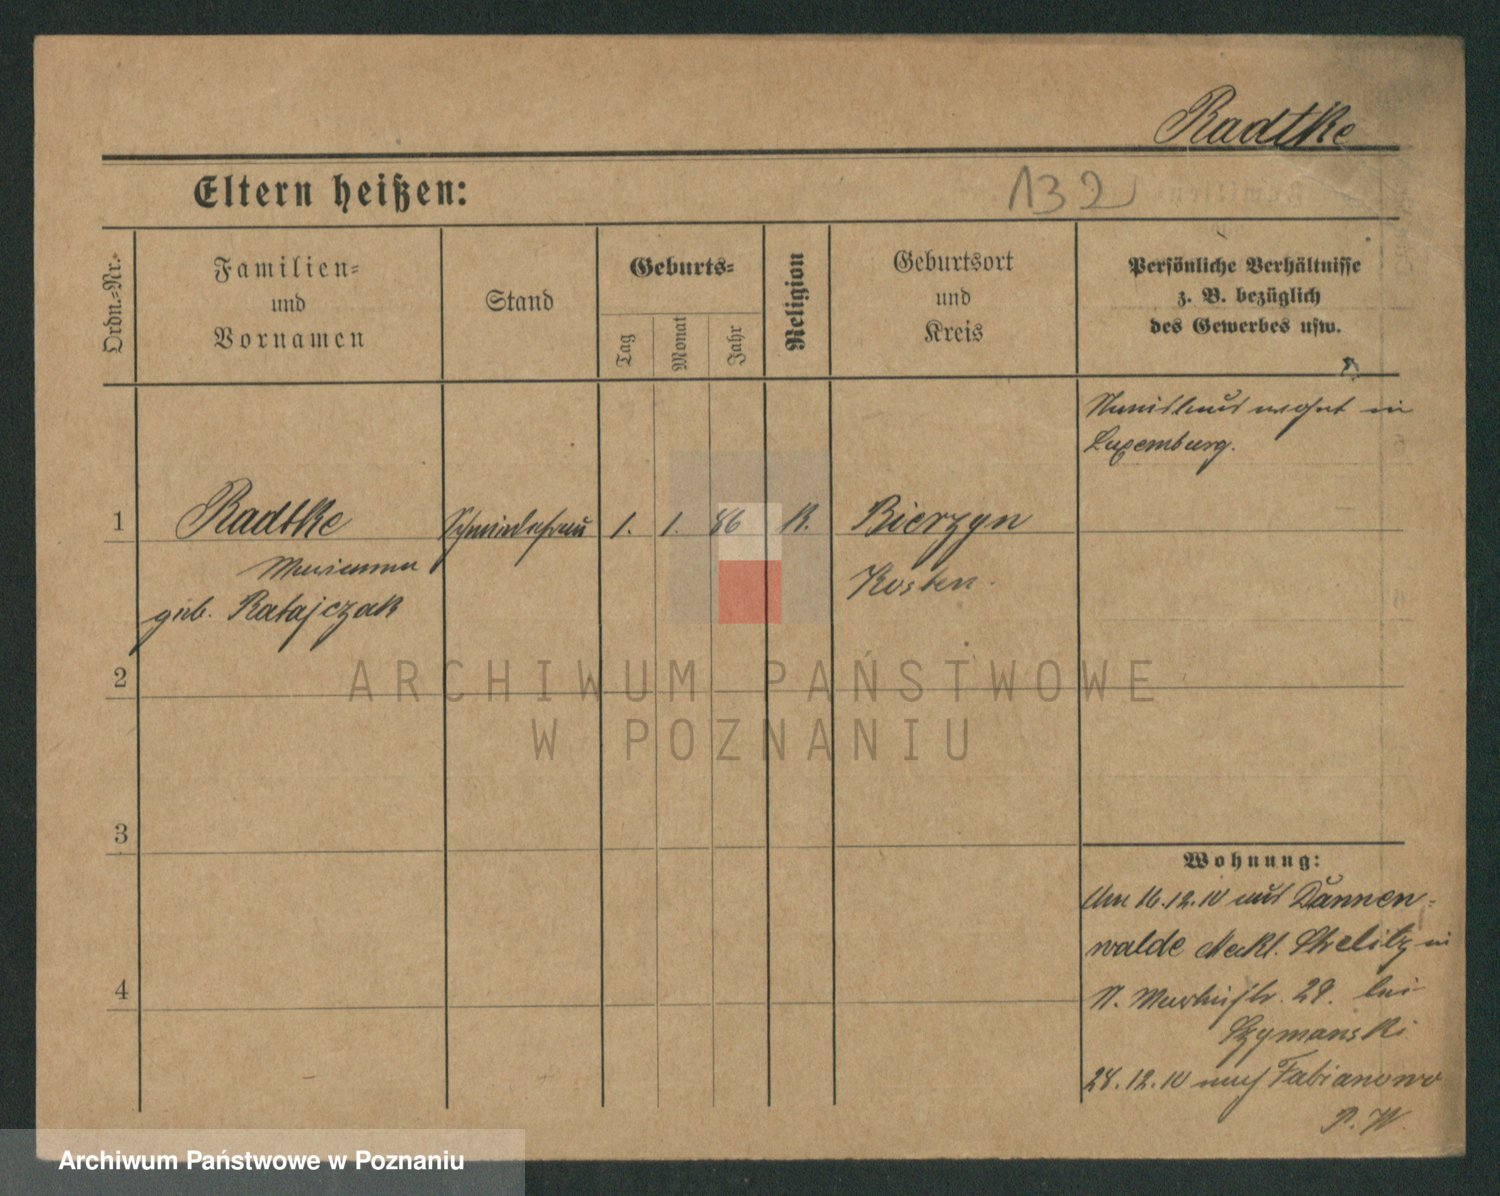 Radtke
Eltern heißen:
132
Ordn.=Nr.
Familien=
und
Vornamen
Stand
Geburts=
Tag
Monat
Jahr
Religion
Geburtsort
und
Kreis
Persönliche Verhältnisse
z. B. bezüglich
des Gewerbes usw.
wohnt in
Luxemburg.
1
Radtke
Schmiedefrau
1.
1.
86
K.
Bierzyn
Marianna
Kosten.
geb. Ratajczak
2
3
4
Wohnung:
Am 16.12.10 aus Dannen=
walde Meckl. Strelitz in
28. bei
Szymanski
28.12.10 nach Fabianowo
P. W.
ARCHIWUM PAŃSTWOWE
W POZNANIU
Archiwum Państwowe w Poznaniu